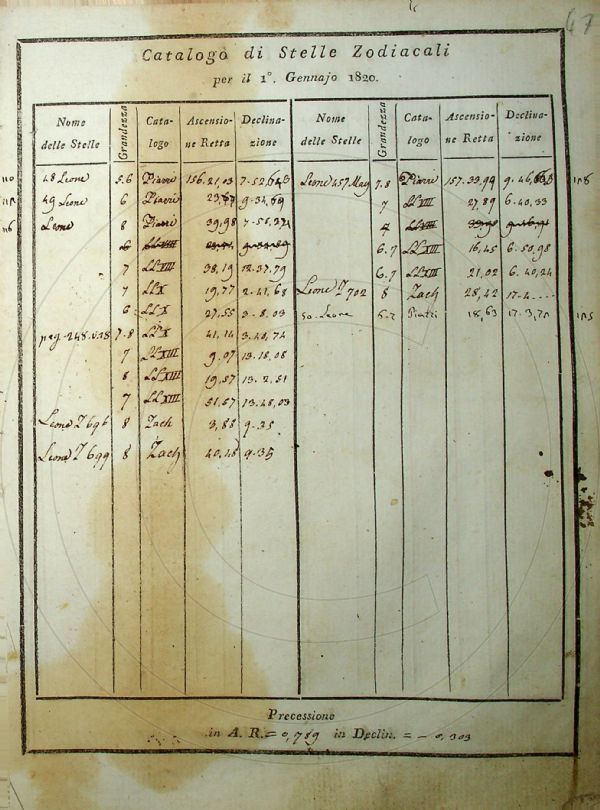 47
Catalogo di Stelle Zodiacali
per il 1°. Gennajo 1820.
Nome delle Stelle Grandezza Catalogo Ascensione Retta Declinazione Nome delle Stelle Grandezza Catalogo Ascensione Retta Declinazione
48 Leone 5.6 Piazzi 156.21,03 7.52, Leone 457 May 7.8 Piazzi 157.33,99 9.46,
49 Leone 6 Piazzi 9.34,69 7 LLXIII 27,89 6.40,33
Leone 8 Piazzi 39,98 7.55, 4 LLXIII
6 LLXIII 6.7 LLXIII 16,45 6.50,98
7 LLXIII 38,19 12.37,79 6.7 LLXIII 21,02 6.40,24
7 LLX 19,77 2.41,68 Leone Z 702 8 Zach 28,42 17.4
6 LLX 27,55 3.8,03 50 Leone Piazzi 18,63
pag. 248 7.8 LLX 41,14 3.40,74
7 LLXIII 9,07 13.18,08
8 LLXIII 19,57 13.2,51
7 LLXIII 51,57 13.48,03
Leone Z 696 8 Zach 3,88 9.25
Leone Z 699 8 Zach 40,18 9.35
Precessione
in A. R. = 0,789 in Declin. = - 0,303